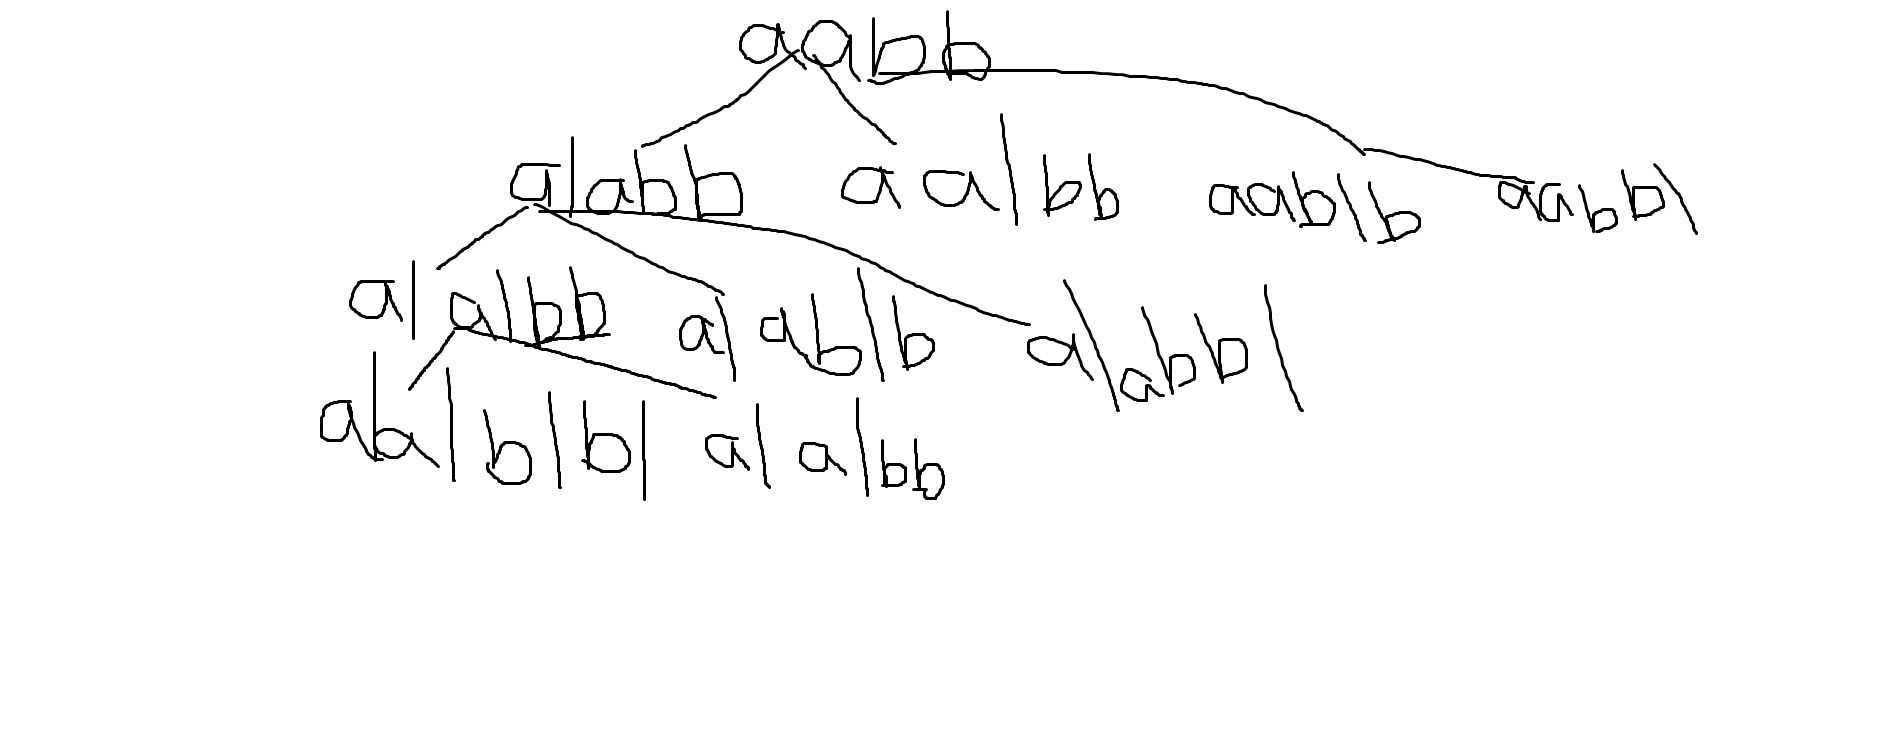 aabb
a|abb aa|bb aab|b aabb|
a|a|bb a|ab|b a|abb|
a|a|b|b| a|a|bb